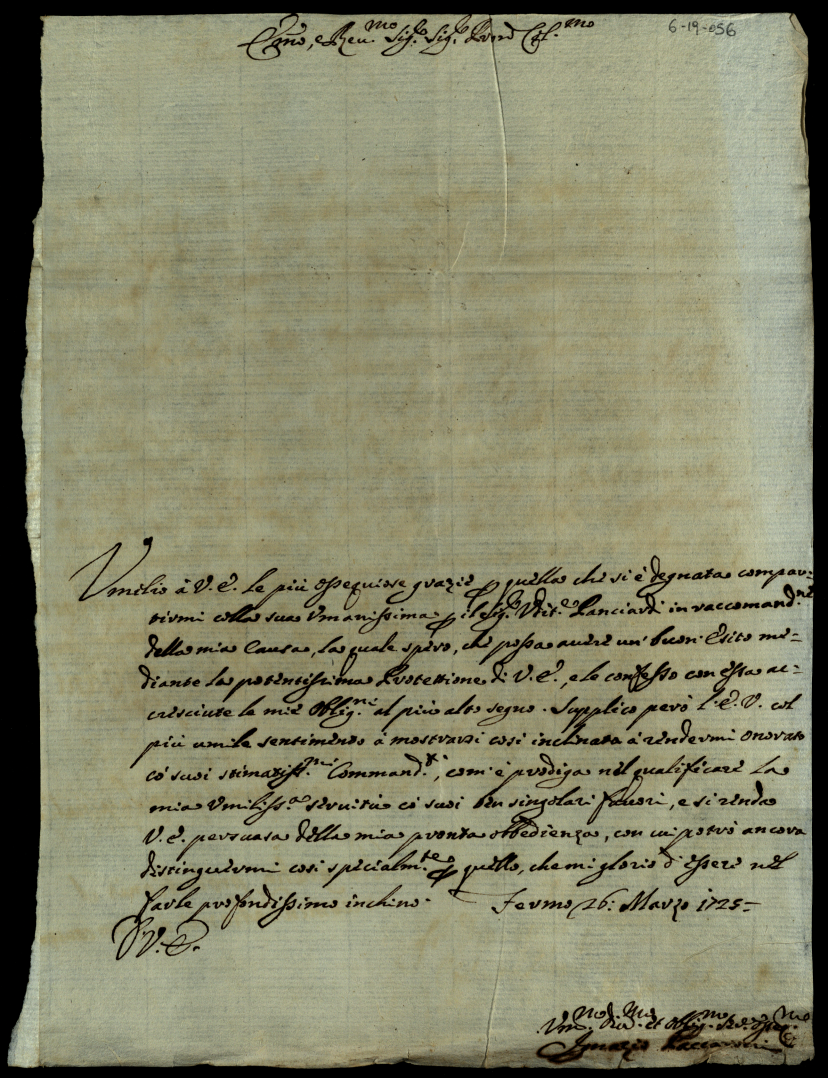 6-19-056
Em̃o, e Reu.mo Sig.e Sig.e Pron Col.mo
Vmilio à V. E. le più ossequiose grazie p quella che si è degnata compar-
tirmi colla sua Vmanissima p il Sig.e Vdit.e Lanciardi in raccomand.ne
della mia Causa, la quale spero, che possa auere un' buon' Esito me-
diante la potentissima Protettione di V. E., e le confesso con essa ac-
cresciute le mie Oblig.ni al più alto segno. Supplico però l'E. V. col
più umile sentimento à mostrarsi così inclinata à rendermi onorato
cò suoi stimatiss.mi Command.ti, com'è prodiga nel qualificare la
mia Vmiliss.a seruitù cò suoi ben singolari fauori, e si renda
V. E. persuasa della mia pronta obbedienza, con cui potrò ancora
distinguermi così specialm.te p quello, che mi glorio d'essere nel
farle profondissimo inchino. Fermo 26: Marzo 1725=
D V. E.
Vm.mo Diu.mo et Oblig.mo Se.e Osseq.mo
Ignazio